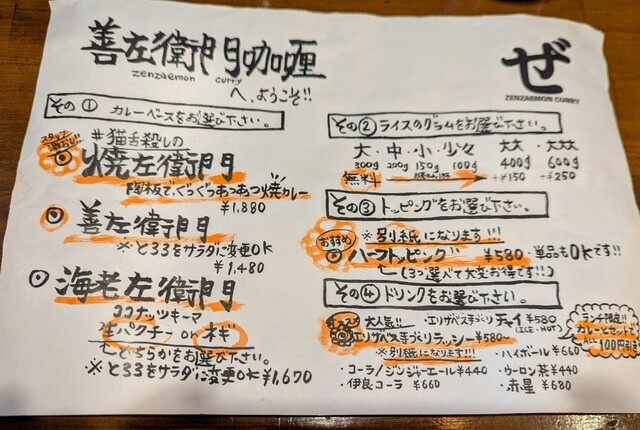 善左衛門咖喱
zenzaemon curry
へ、ようこそ!!
ぜ
ZENZAEMON CURRY
その① カレーベースをお選び下さい。
スタッフ激おし!!
#猫舌殺しの
焼左衛門
陶板でぐらぐらあつあつ焼カレー
¥1,880
善左衛門
※とろろをサラダに変更OK
¥1,480
海老左衛門
ココナッツキーマ
生パクチー OR ネギ
どちらかをお選び下さい。
※とろろをサラダに変更OK ¥1,670
その② ライスのグラムをお選び下さい。
大・中・小・少々 大大・大大大
300g 200g 150g 100g 400g 600g
無料 +¥150 +¥250
その③ トッピングをお選び下さい。
※別紙になります!!!
おすすめ
ハーフトッピング ¥580・単品もOKです!!
(3つ選べて大変お得です!!)
その④ ドリンクをお選び下さい。
大人気!!
・エリザベス手づくりチャイ ¥580
(ICE・HOT)
エリザベス手づくりラッシー ¥580
※別紙になります!!!
ランチ限定!!
カレーとセットで
ALL 100円引き
・ハイボール ¥660
・コーラ/ジンジャーエール ¥440
・ウーロン茶 ¥440
・伊良コーラ ¥660
・赤星 ¥680